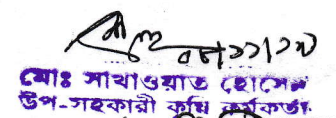 মোঃ সাখাওয়াত হোসেন
উপ-সহকারী কৃষি কর্মকর্তা